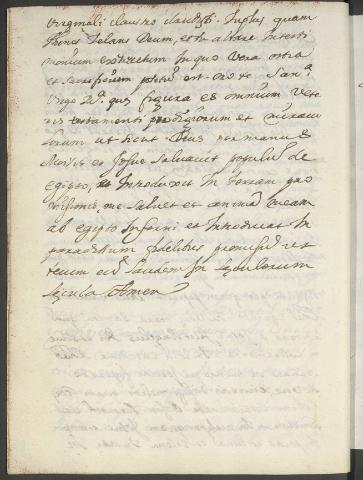 virginali claustro claudisti. Ipsius quam
Thronus zelans Deum, et tu altare Intesti
monium extructum In quo vera ostia
et sacrificium est. norte San.ª
Virgo M.ª que figura es omnium Vete
ris testamenti prodigiorum et miracu
lorum ut sicut Deus per manus
Moisis et Josue Salvavit populum de
egipto, Introduxit In terram pro
missionis, me salvet et animam meam
ab egipto Inferni et Introducat In
paradisum fidelibus promissum ut
tecum eius laudem In seculorum
secula Amen